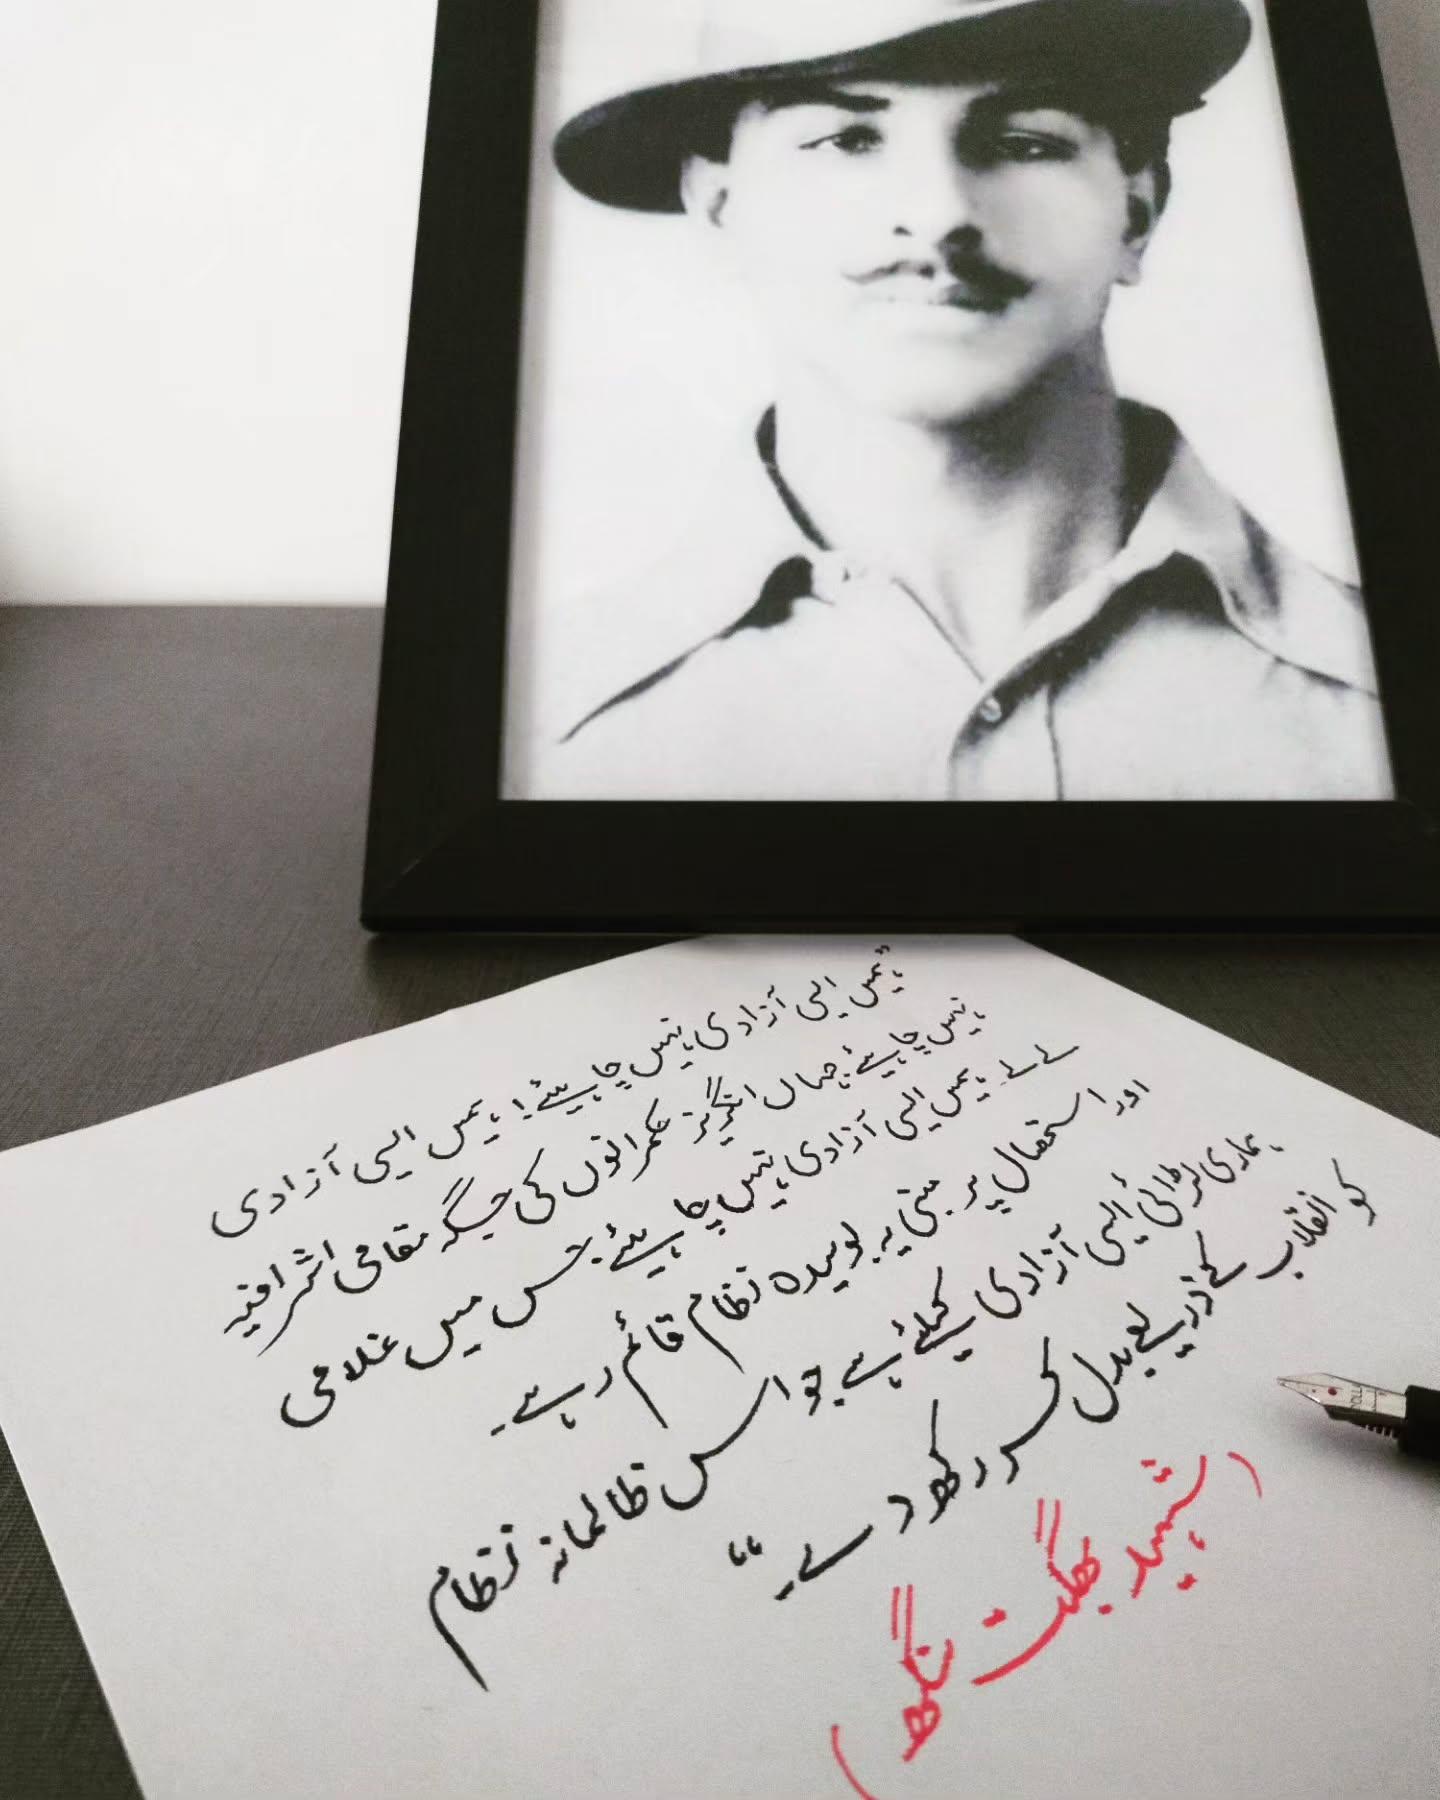 ”ہمیں ایسی آزادی نہیں چاہیئے! ہمیں ایسی آزادی
نہیں چاہیئے جہاں انگریز حکمرانوں کی جگہ مقامی اشرافیہ
لے لے۔ ہمیں ایسی آزادی نہیں چاہیئے جس میں غلامی
اور استحصال پر مبنی یہ بوسیدہ نظام قائم رہے۔
ہماری لڑائی ایسی آزادی کیلئے ہے جو اس ظالمانہ نظام
کو انقلاب کے ذریعے بدل کر رکھ دے۔“
(شہید بھگت سنگھ)
ROLL